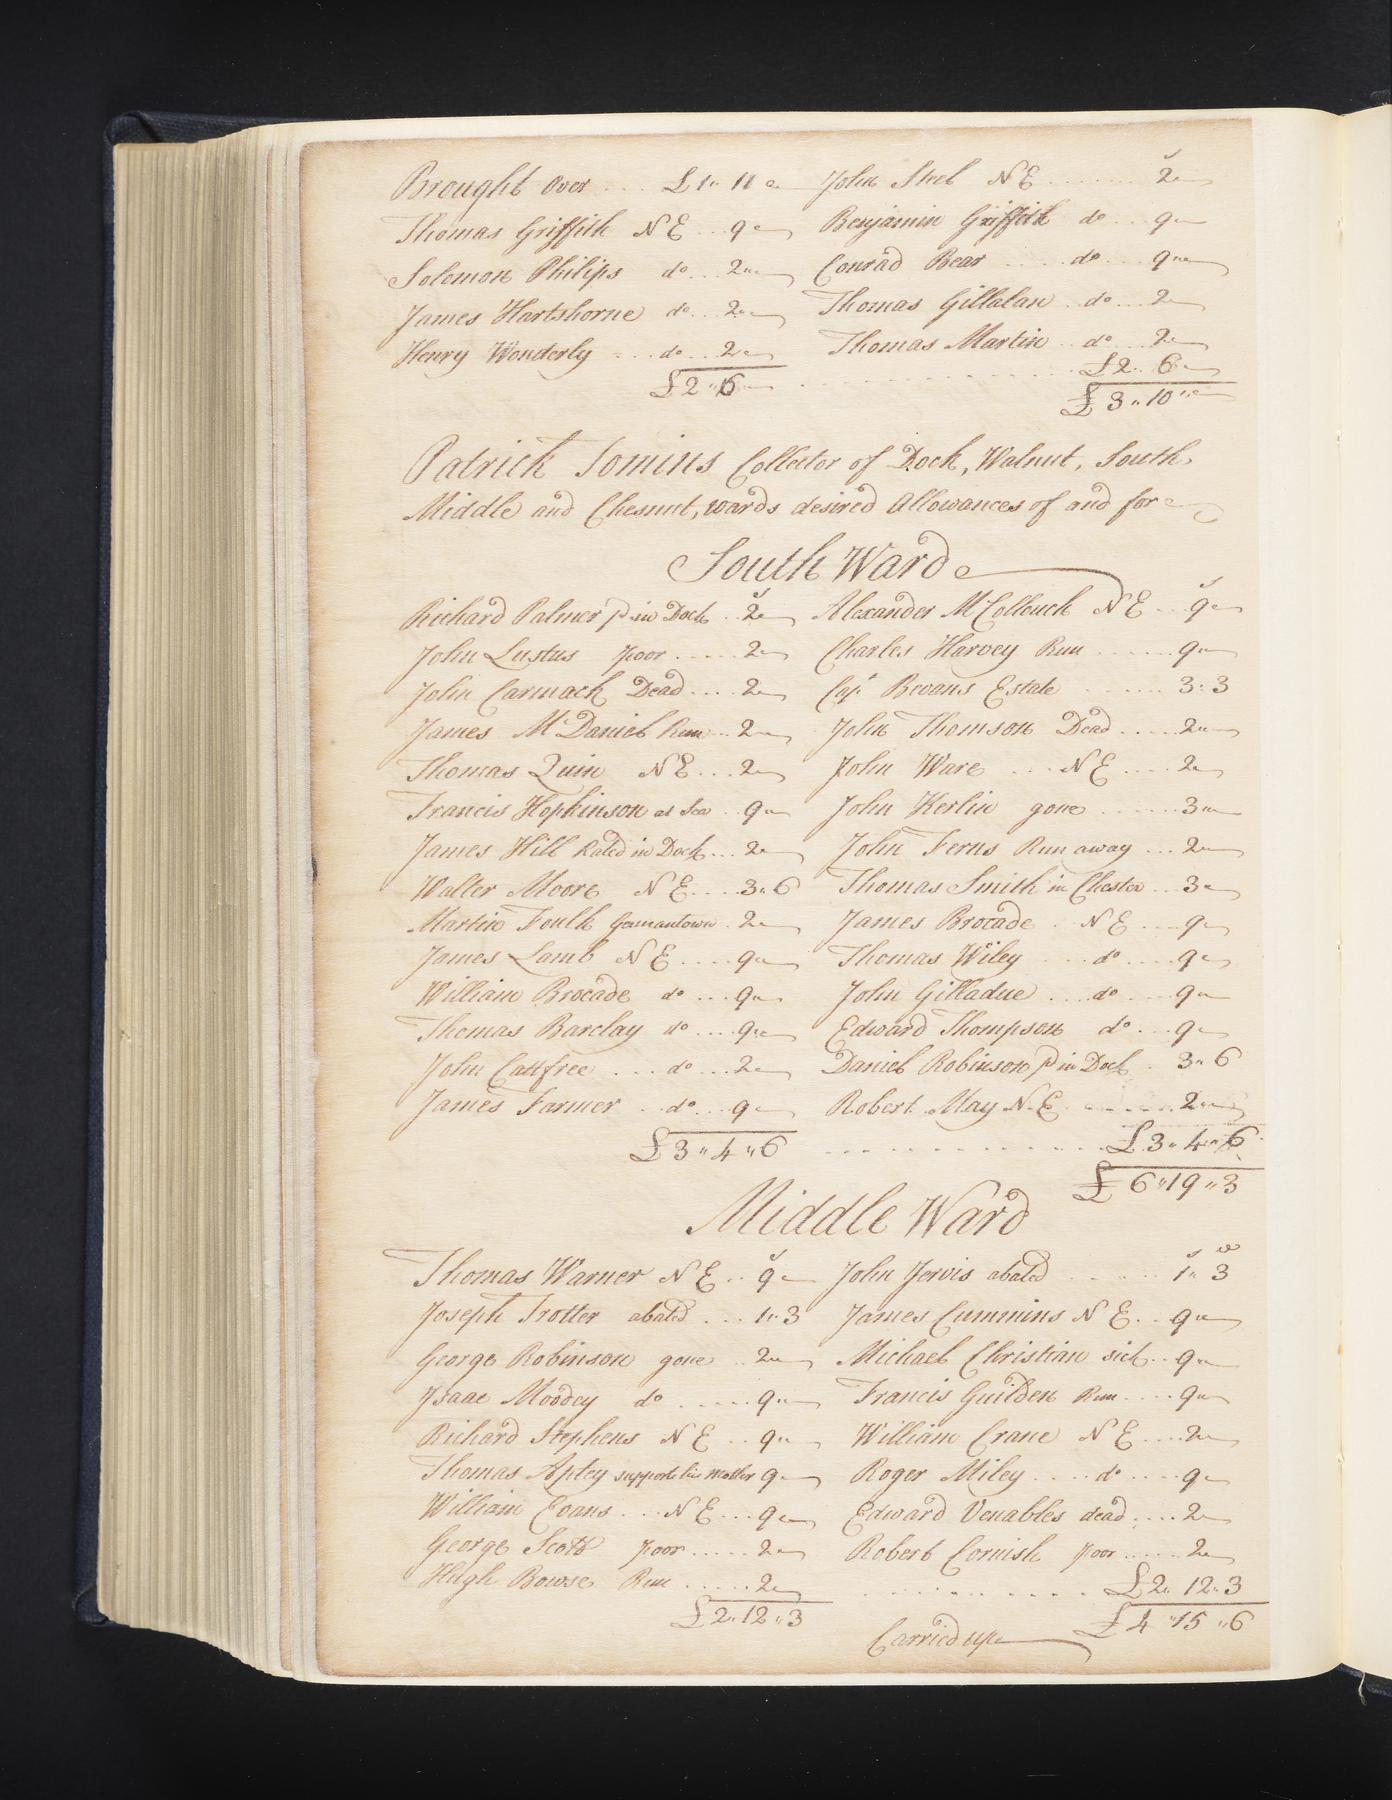 Brought Over .... £1" 11
Thomas Griffith NE ... 9
Solomon Philips do ... 2
James Hartshorne do ... 2
Henry Wonderly ... do ... 2
£2 " 6
John Steel NE ........ 2
Benjamin Griffith do ... 9
Conrad Bear ..... do ... 9
Thomas Gillalan .. do ... 2
Thomas Martin .. do ... 2
£2 " 6
£3 " 10 "
Patrick Tomins Collector of Dock, Walnut, South,
Middle and Chesnut, wards desired Allowances of and for
South Ward
Richard Palmer pd in Dock .. 2
John Lustus poor ..... 2
John Carmack Dead .... 2
James McDaniel Run ... 2
Thomas Quin NE ... 2
Francis Hopkinson at Sea .. 9
James Hill Rated in Dock ... 2
Walter Moore NE .... 3 " 6
Martin Foulk Germantown . 2
James Lamb NE .... 9
William Brocade do ... 9
Thomas Barclay do .... 9
John Cattfree .... do ... 2
James Farmer .. do ... 9
£3 " 4 " 6
Alexander McCollouch NE ... 9
Charles Harvey Run ...... 9
Capt Bevans Estate ..... 3 : 3
John Thomson Dead ..... 2
John Ware ... NE .... 2
John Kerlin gone ...... 3
John Ferns Run away ... 2
Thomas Smith in Chester ... 3
James Brocade . NE .... 9
Thomas Wiley .... do .... 9
John Gilladue .... do .... 9
Edward Thompson do ... 9
Daniel Robinson pd in Dock . 3 " 6
Robert May NE ...... 2
£3 " 4 " 6
£6 " 19 " 3
Middle Ward
Thomas Warner NE .. 9
Joseph Trotter abated ... 1 " 3
George Robinson gone .. 2
Isaac Moodey do ..... 9
Richard Stephens NE .. 9
Thomas Aptey supports his Mother 9
William Evans ... NE ... 9
George Scott poor ..... 2
Hugh Bowse Run ..... 2
£2 " 12 " 3
John Jervis abated ...... 1 " 3
James Cummins NE .. 9
Michael Christian sick .. 9
Francis Guilden Run .... 9
William Crane NE .... 2
Roger Miley .... do .... 9
Edward Venables dead .... 2
Robert Cornish poor ..... 2
£2 " 12 " 3
£4 " 15 " 6
Carried up